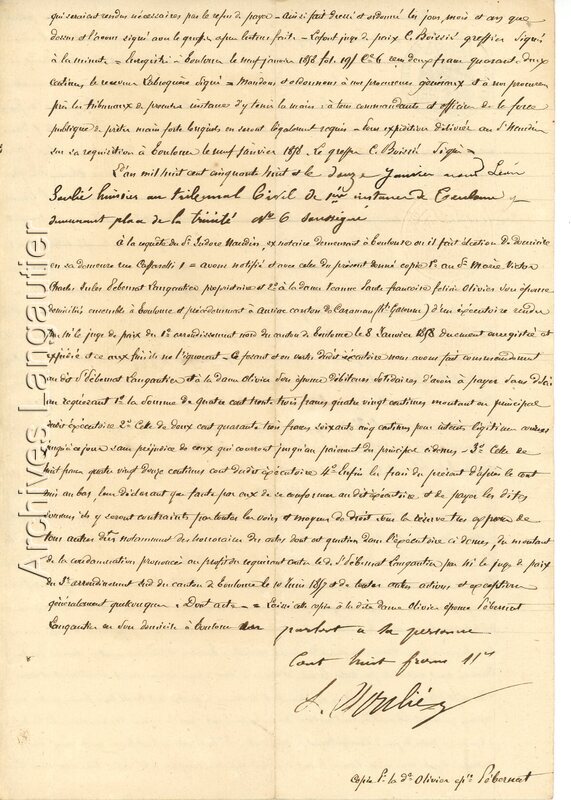 qui seraient rendus nécessaires par le refus de payer - Ainsi fait dressé et ordonné les jour, mois et an que
dessus et l'avons signé avec le greffier après lecture faite - juge de paix C. Boissié greffier Signé
à la minute = Enregistré à Toulouse le neuf janvier 1858 fol. 191 Cse 6 reçu deux francs quarante deux
centimes, le receveur Signé = Mandons et ordonnons à nos procureurs généraux et à nos procureurs
près les tribunaux de première instance d'y tenir la main, à tous commandants et officiers de la force
publique de prêter main forte lorsqu'ils en seront légalement requis - Pour expédition délivrée au Sr Naudin
sur sa réquisition à Toulouse le neuf janvier 1858. Le greffier C. Boissié Signé -
L'an mil huit cent cinquante huit et le douze Janvier nous Léon
Soulié huissier au tribunal Civil de pre instance de Toulouse y
demeurant place de la trinité No 6 soussigné
à la requête du Sr Isidore Naudin, ex notaire demeurant à Toulouse où il fait élection de domicile
en sa demeure rue Caffarelli 1 = avons notifié et avec celle du présent donné copie 1o au Sr Marie Victor
Charles Jules Pébernat Langautier propriétaire et 2o à la dame Jeanne Paule françoise félicie Olivier son épouse
domiciliés ensemble à Toulouse et précédemment à Auriac canton de Caraman (Hte Garonne) d'un exécutoire rendu
par Mr le juge de paix du 1er arrondissement nord du canton de Toulouse le 8 Janvier 1858 dument enregistré et
expédié et ce aux fins qu'ils ne l'ignorent - Ce faisant et en vertu dudit exécutoire nous avons fait commandement
audit Sr Pébernat Langautier et à la dame Olivier son épouse débiteurs solidaires d'avoir à payer sans délai
au requérant 1o la somme de quatre cent trente trois francs quatre vingt centimes montant en principal
dudit exécutoire 2o Celle de deux cent quarante trois francs soixante cinq centimes pour intérêts légitimes courus
jusqu'à ce jour sans préjudice de ceux qui courront jusqu'au paiement du principal ci dessus - 3o Celle de
huit francs quatre vingt douze centimes coût dudit exécutoire 4o Enfin les frais du présent d'après le coût
mis au bas, leur déclarant que faute par eux de se conformer au dit exécutoire et de payer les dites
sommes ils y seront contraints par toutes les voies et moyens de droit sous la réserve très expresse de
tous autres dus notamment des honoraires des actes dont est question dans l'exécutoire ci dessus, du montant
de la condamnation prononcée au profit du requérant contre le d. Sr Pébernat Langautier par Mr le juge de paix
du 3e arrondissement Sud du canton de Toulouse le 10 Juin 1857 et de toutes autres actions et exceptions
généralement quelconques. Dont acte = Laissé cette copie à la dite dame Olivier épouse Pébernat
Langautier en son domicile à Toulouse parlant à sa personne
Cout huit francs 11 cs
L. Soulié
Copie Pr la de Olivier épse Pébernat
Archives Langautier